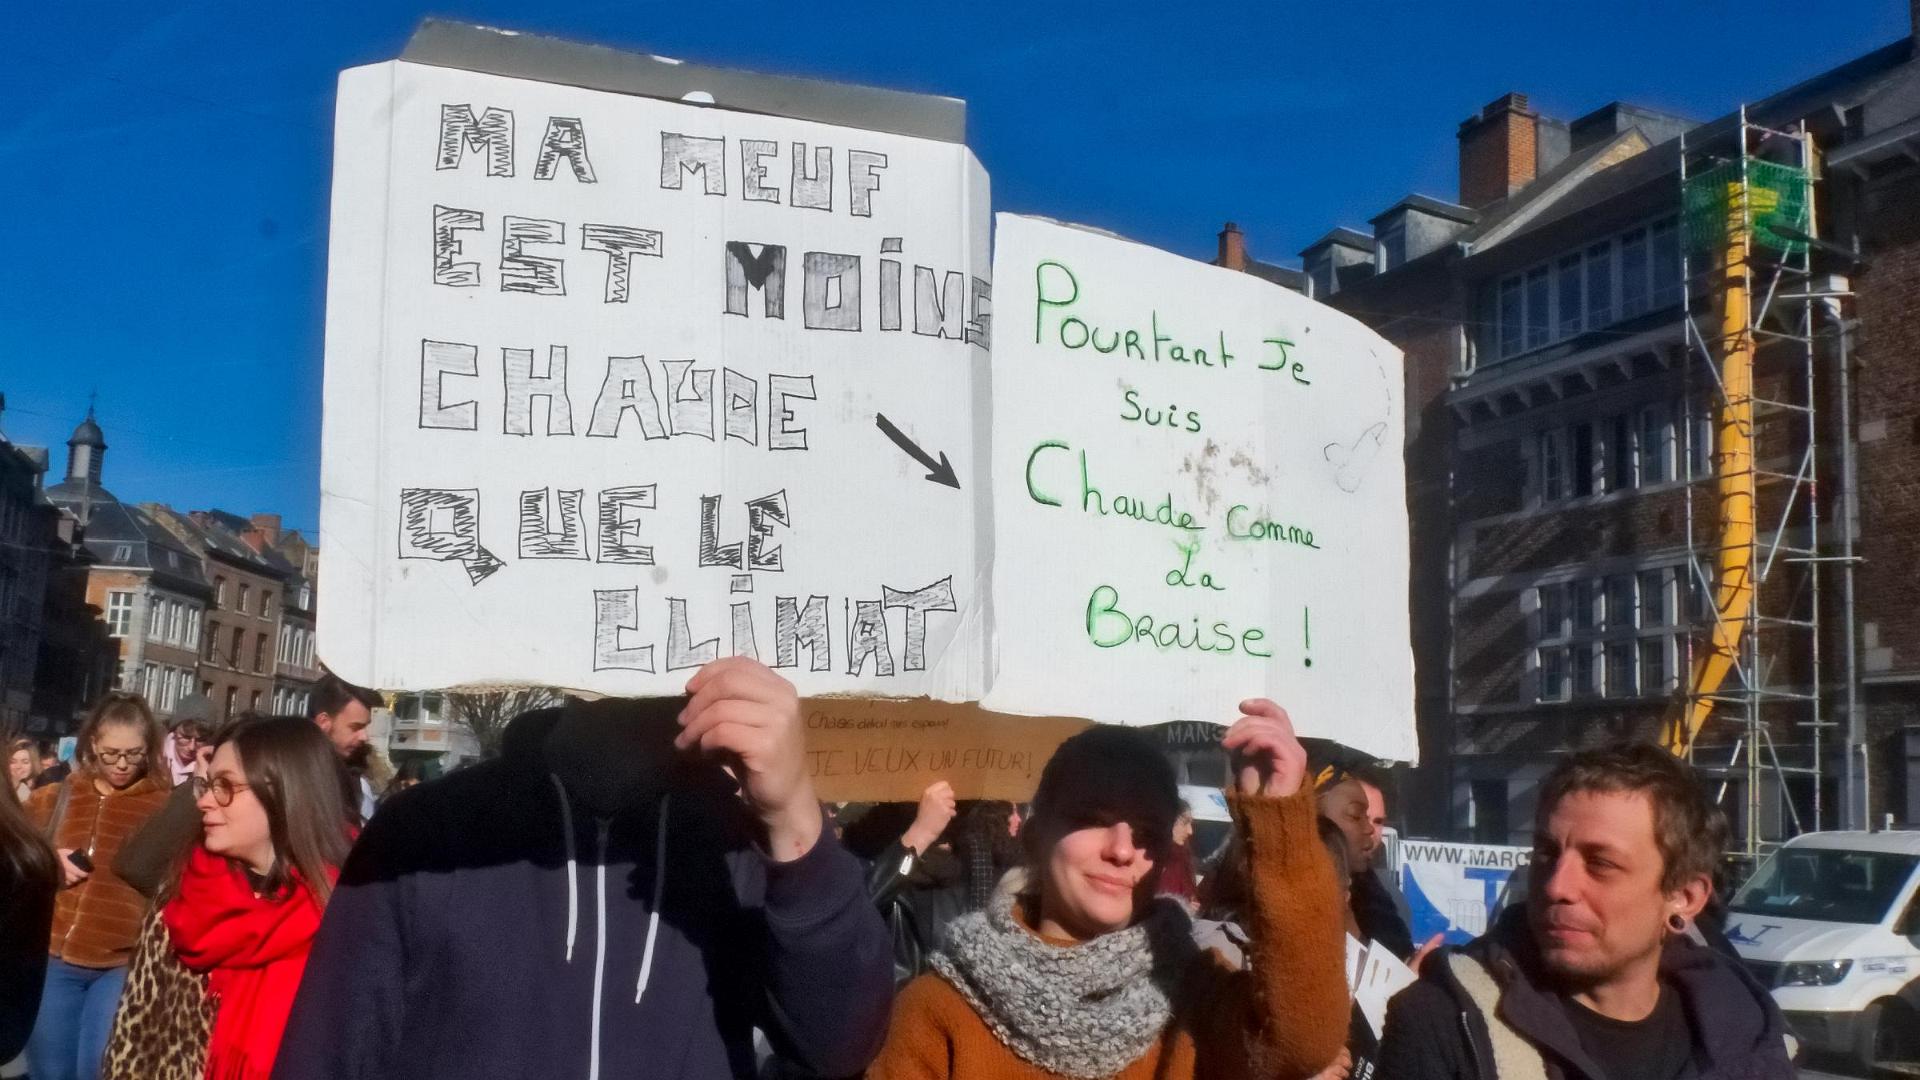 MA MEUF
EST MOiNS
CHAUDE
QUE LE
CLiMAT
Pourtant Je
Suis
Chaude Comme
La
Braise !
JE VEUX UN FUTUR!
MANG
WWW.MARC